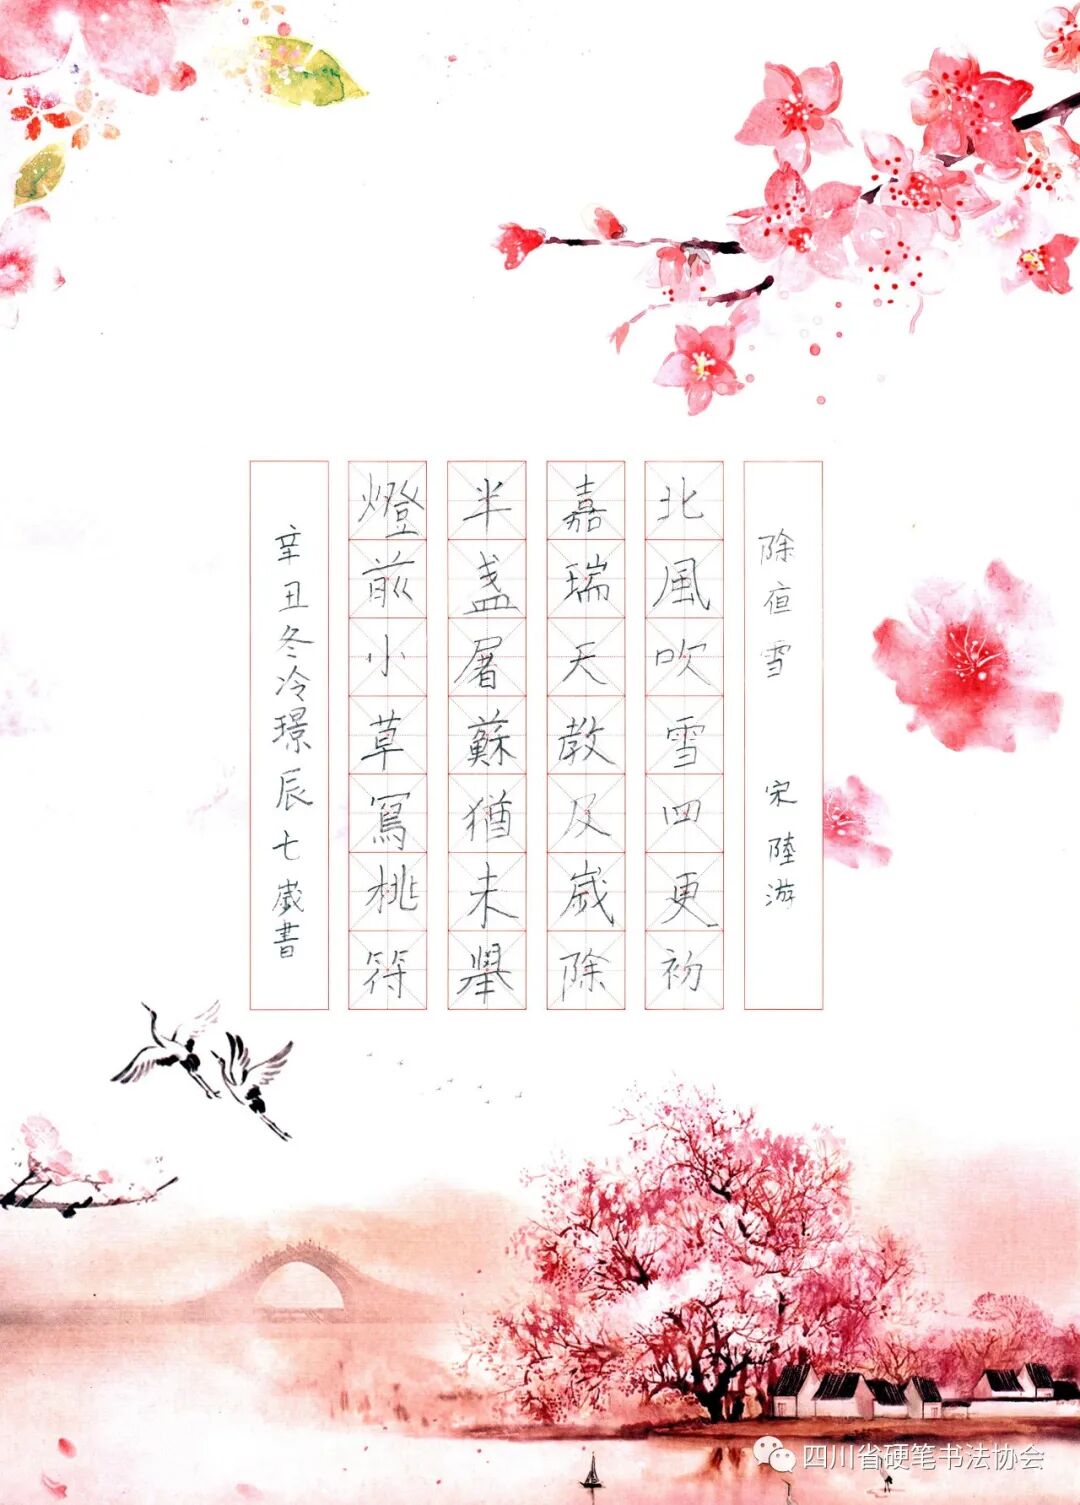 除夜雪 宋陸游
北風吹雪四更初
嘉瑞天教及歲除
半盞屠蘇猶未舉
燈前小草寫桃符
辛丑冬冷璟辰七歲書
四川省硬笔书法协会